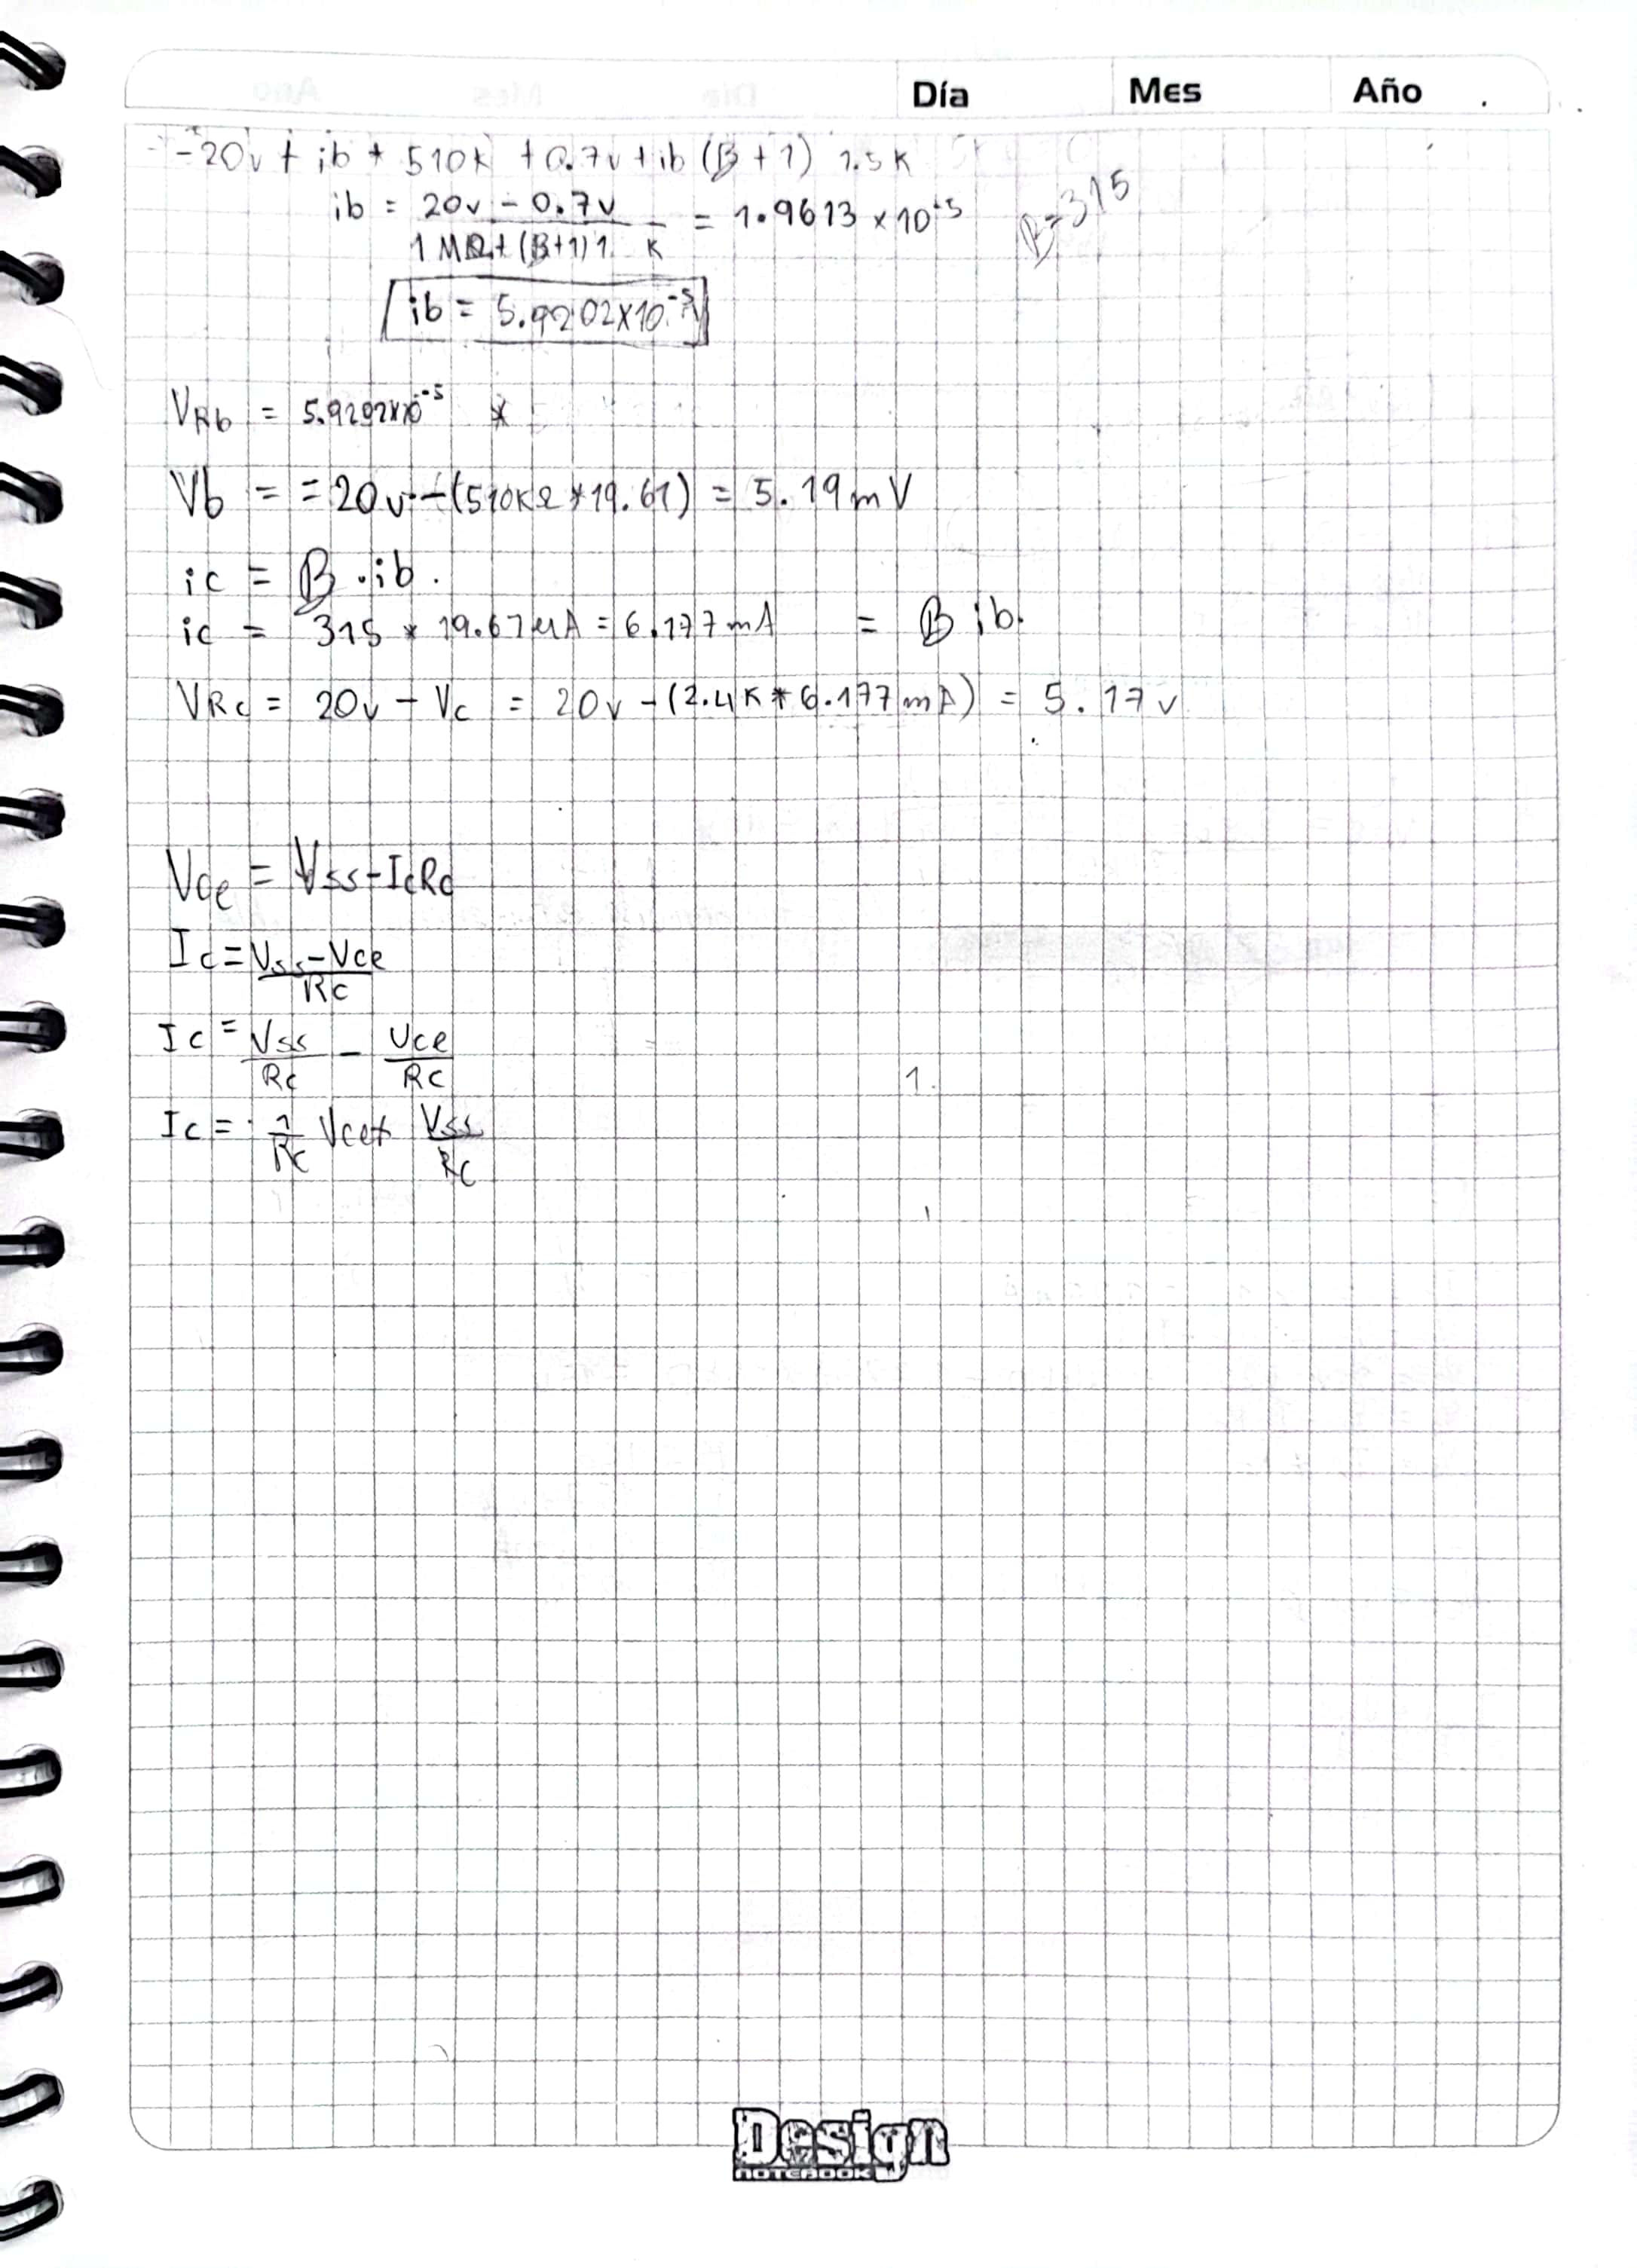 Día Mes Año
-20v + ib * 510k + 0.7v + ib (B + 1) 1.5k
ib = 20v - 0.7v / 1MΩ + (B+1) 1. k = 1.9613 x 10^-5 B=315
ib = 5.9202x10^-5 A
VRb = 5.9202x10^-5 *
Vb = = 20v - (510kΩ * 19.61) = 5.19mV
ic = B . ib.
ic = 315 * 19.61µA = 6.177mA = B ib.
VRc = 20v - Vc = 20v - (2.4k * 6.177mA) = 5.17v
Vce = Vss - IcRc
Ic = Vss - Vce / Rc
Ic = Vss / Rc - Vce / Rc
1.
Ic = - 1 / Rc Vce + Vss / Rc
Design
NOTEBOOK